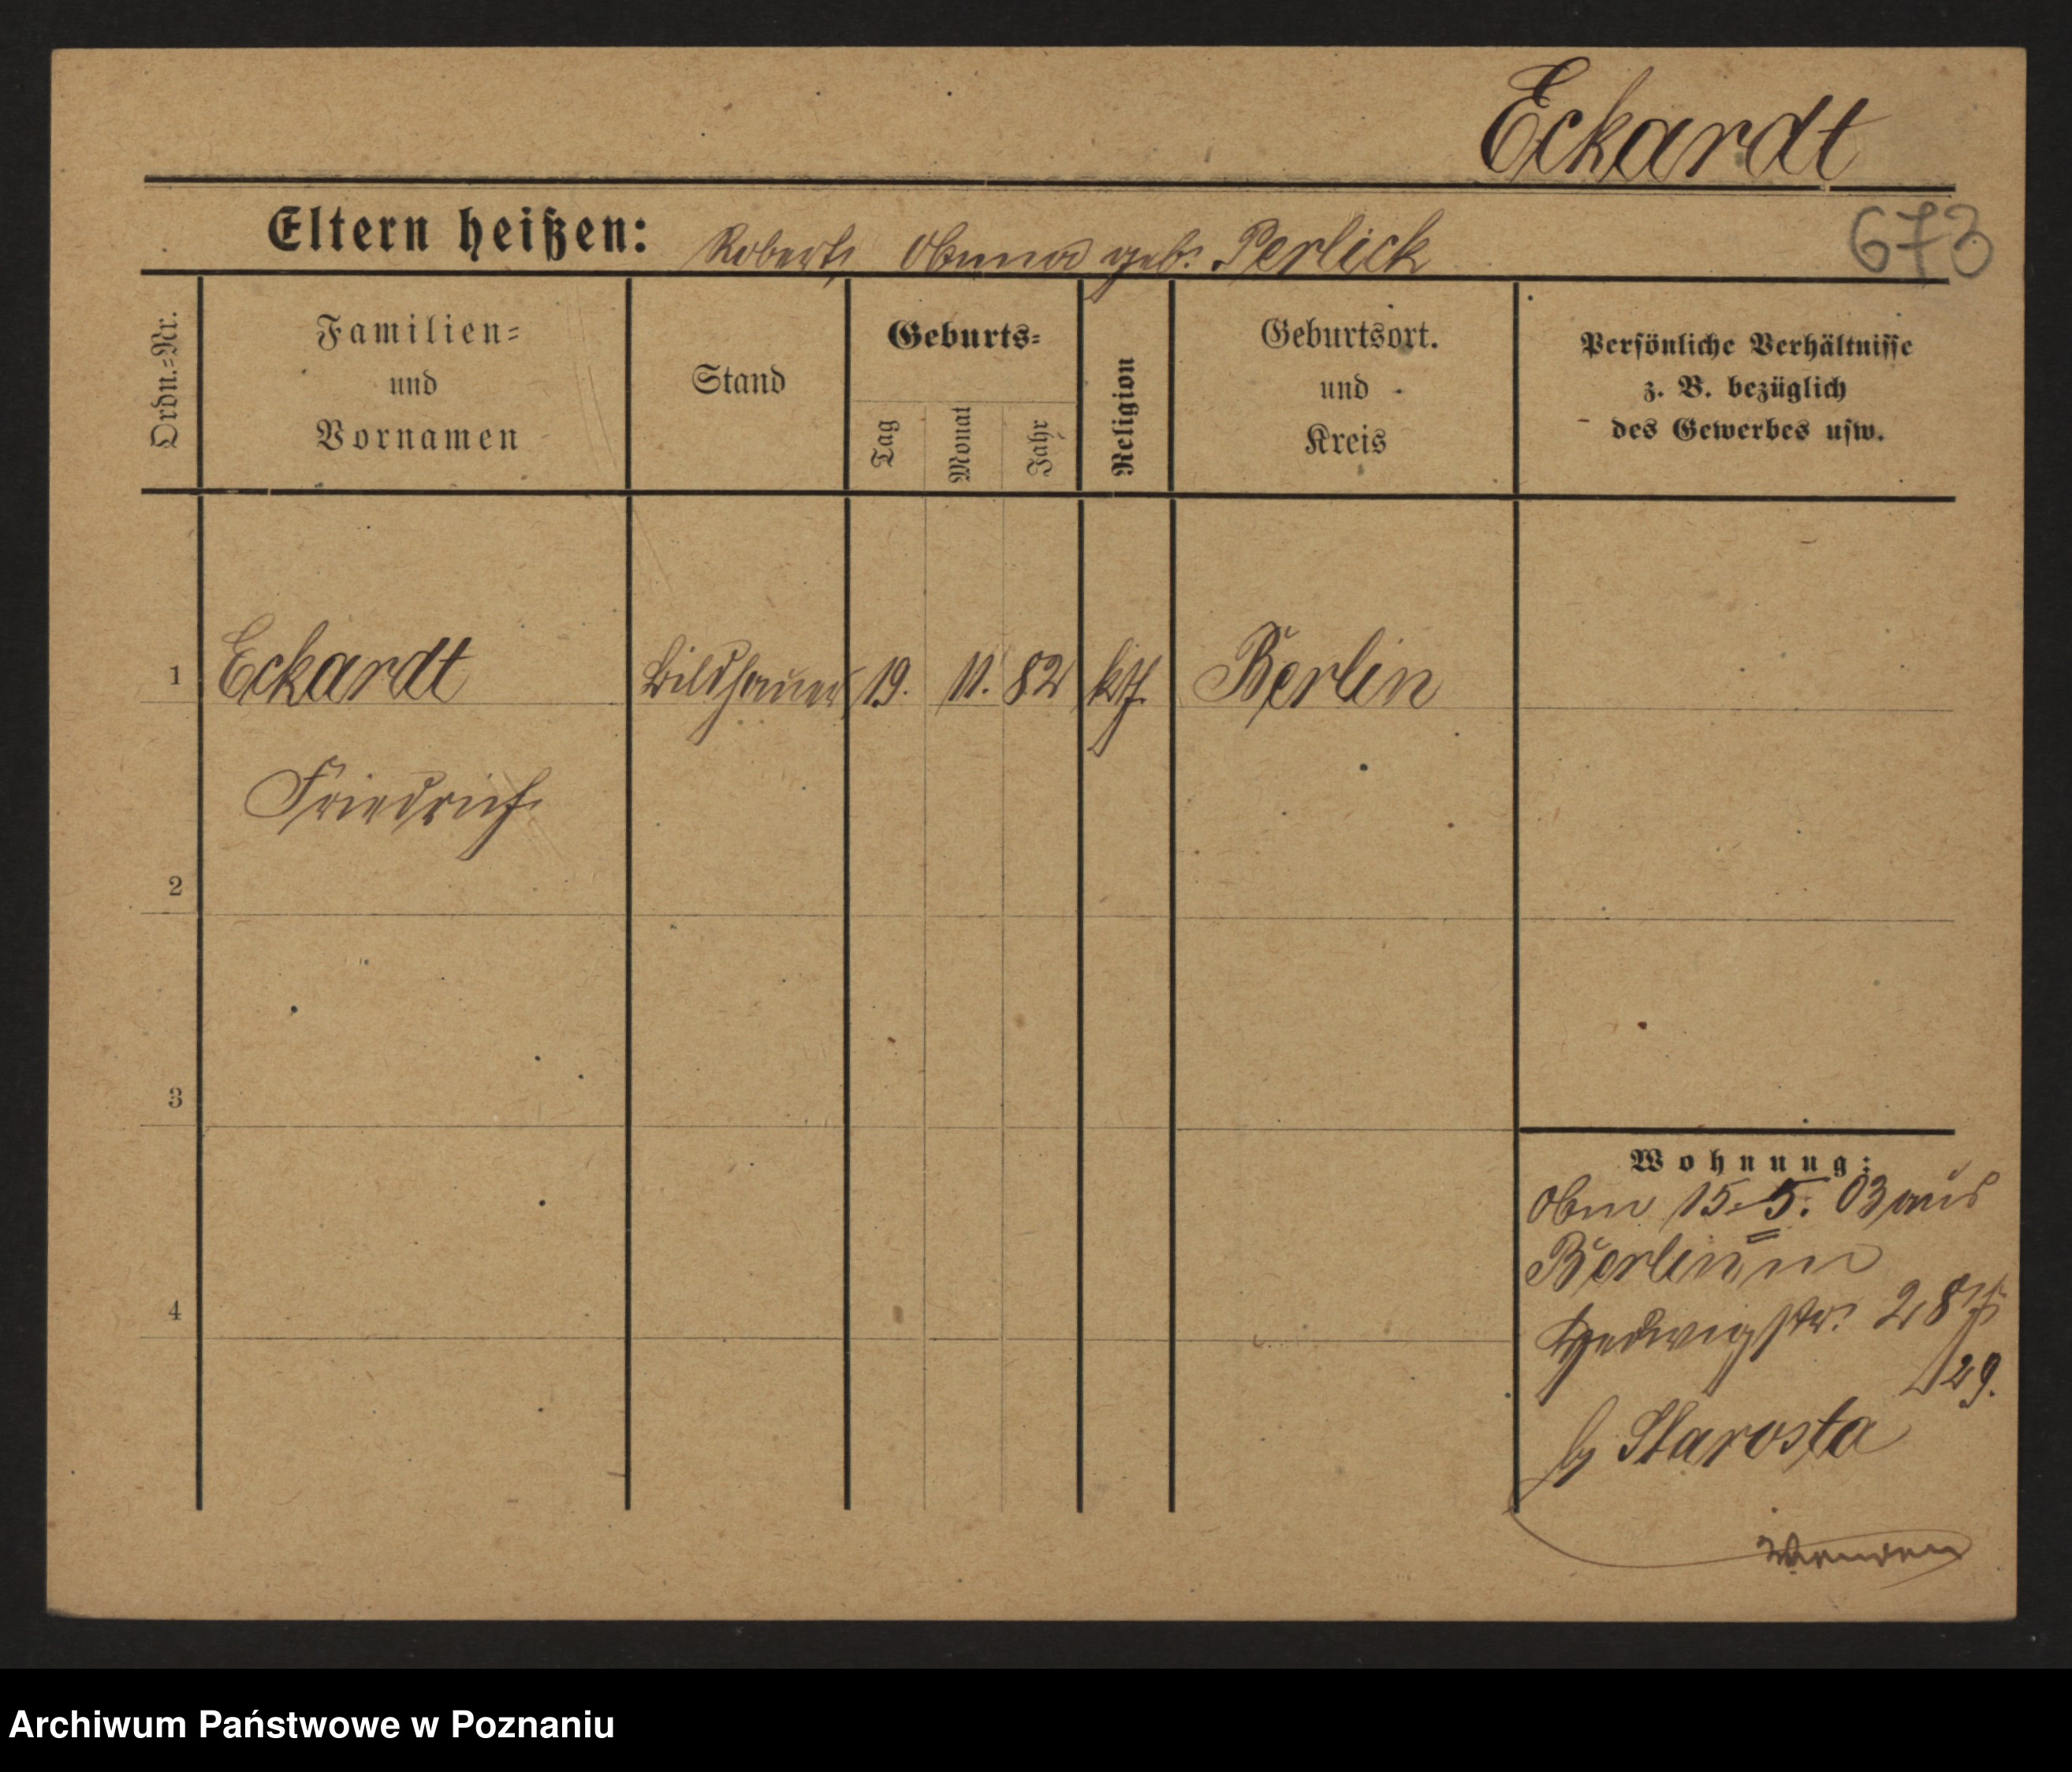 Eckardt
673
Eltern heißen: Robert, Anna geb. Perlick
Ordn.=Nr.
Familien=
und
Vornamen
Stand
Geburts=
Tag
Monat
Jahr
Religion
Geburtsort.
und
Kreis
Persönliche Verhältnisse
z. B. bezüglich
des Gewerbes usw.
1 Eckardt Bildhauer 19. 11. 82 kth. Berlin
Friedrich
2
3
4
Wohnung:
Am 15. 5. 03 aus
Berlin
Hedwigstr. 28
29.
b/ Starosta
Wenden
Archiwum Państwowe w Poznaniu